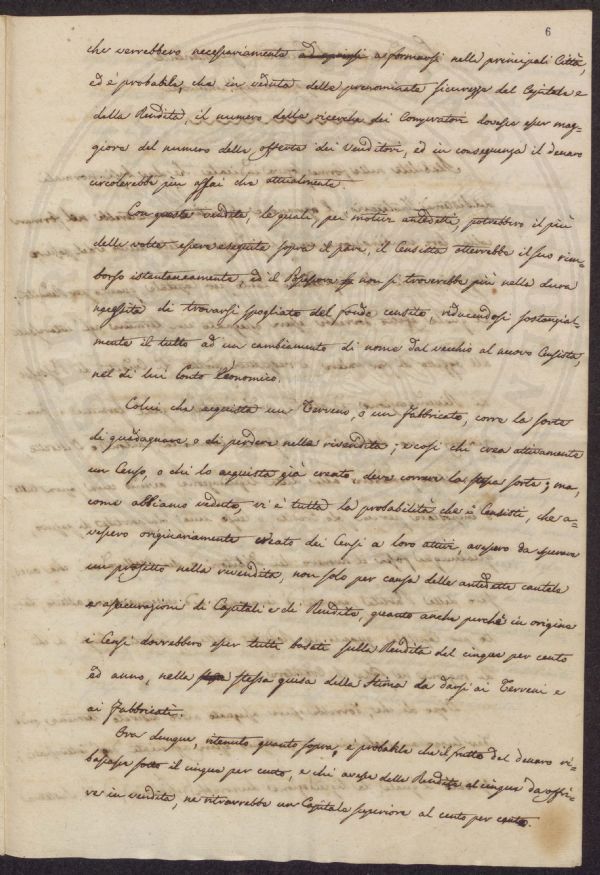 6
che verrebbero necessariamente ad aprirsi a formarsi nelle principali Città,
ed è probabile, che in veduta delle prenominate sicurezze del Capitale e
della Rendita, il numero delle ricerche dei Compratori dovesse esser mag=
giore del numero delle offerte dei Venditori, ed in conseguenza il denaro
circolerebbe più assai che attualmente.
Con queste vendite, le quali, pei motivi anzidetti, potrebbero il più
delle volte essere eseguite sopra il pare, il Censista otterrebbe il suo rim=
borso istantaneamente, ed il Possessore non si troverebbe più nella dura
necessità di trovarsi spogliato del fondo censito, riducendosi sostanzial=
mente il tutto ad un cambiamento di nome dal vecchio al nuovo Censista,
nel di lui Conto Economico.
Colui che acquista un Terreno, o un Fabbricato, corre la sorte
di guadagnare, o di perdere nella rivendita; e così chi crea attivamente
un Censo, o chi lo acquista già creato, deve correre la stessa sorte; ma,
come abbiamo veduto, vi è tutta la probabilità che i Censisti, che a=
vessero originariamente creato dei Censi a loro attivi, avessero da sperare
un profitto nella rivendita, non solo per causa delle anzidette cautele
e assicurazioni di Capitali e di Rendite, quanto anche perchè in origine
i Censi dovrebbero esser tutti basati sulla Rendita del cinque per cento
ad anno, nella stessa guisa della Stima da darsi ai Terreni e
ai Fabbricati.
Ora dunque, ritenuto quanto sopra, è probabile che il frutto del denaro ri=
bassasse sotto il cinque per cento, e chi avesse delle Rendite al cinque da offri=
re in vendita, ne ritrarrebbe un Capitale superiore al cento per cento.